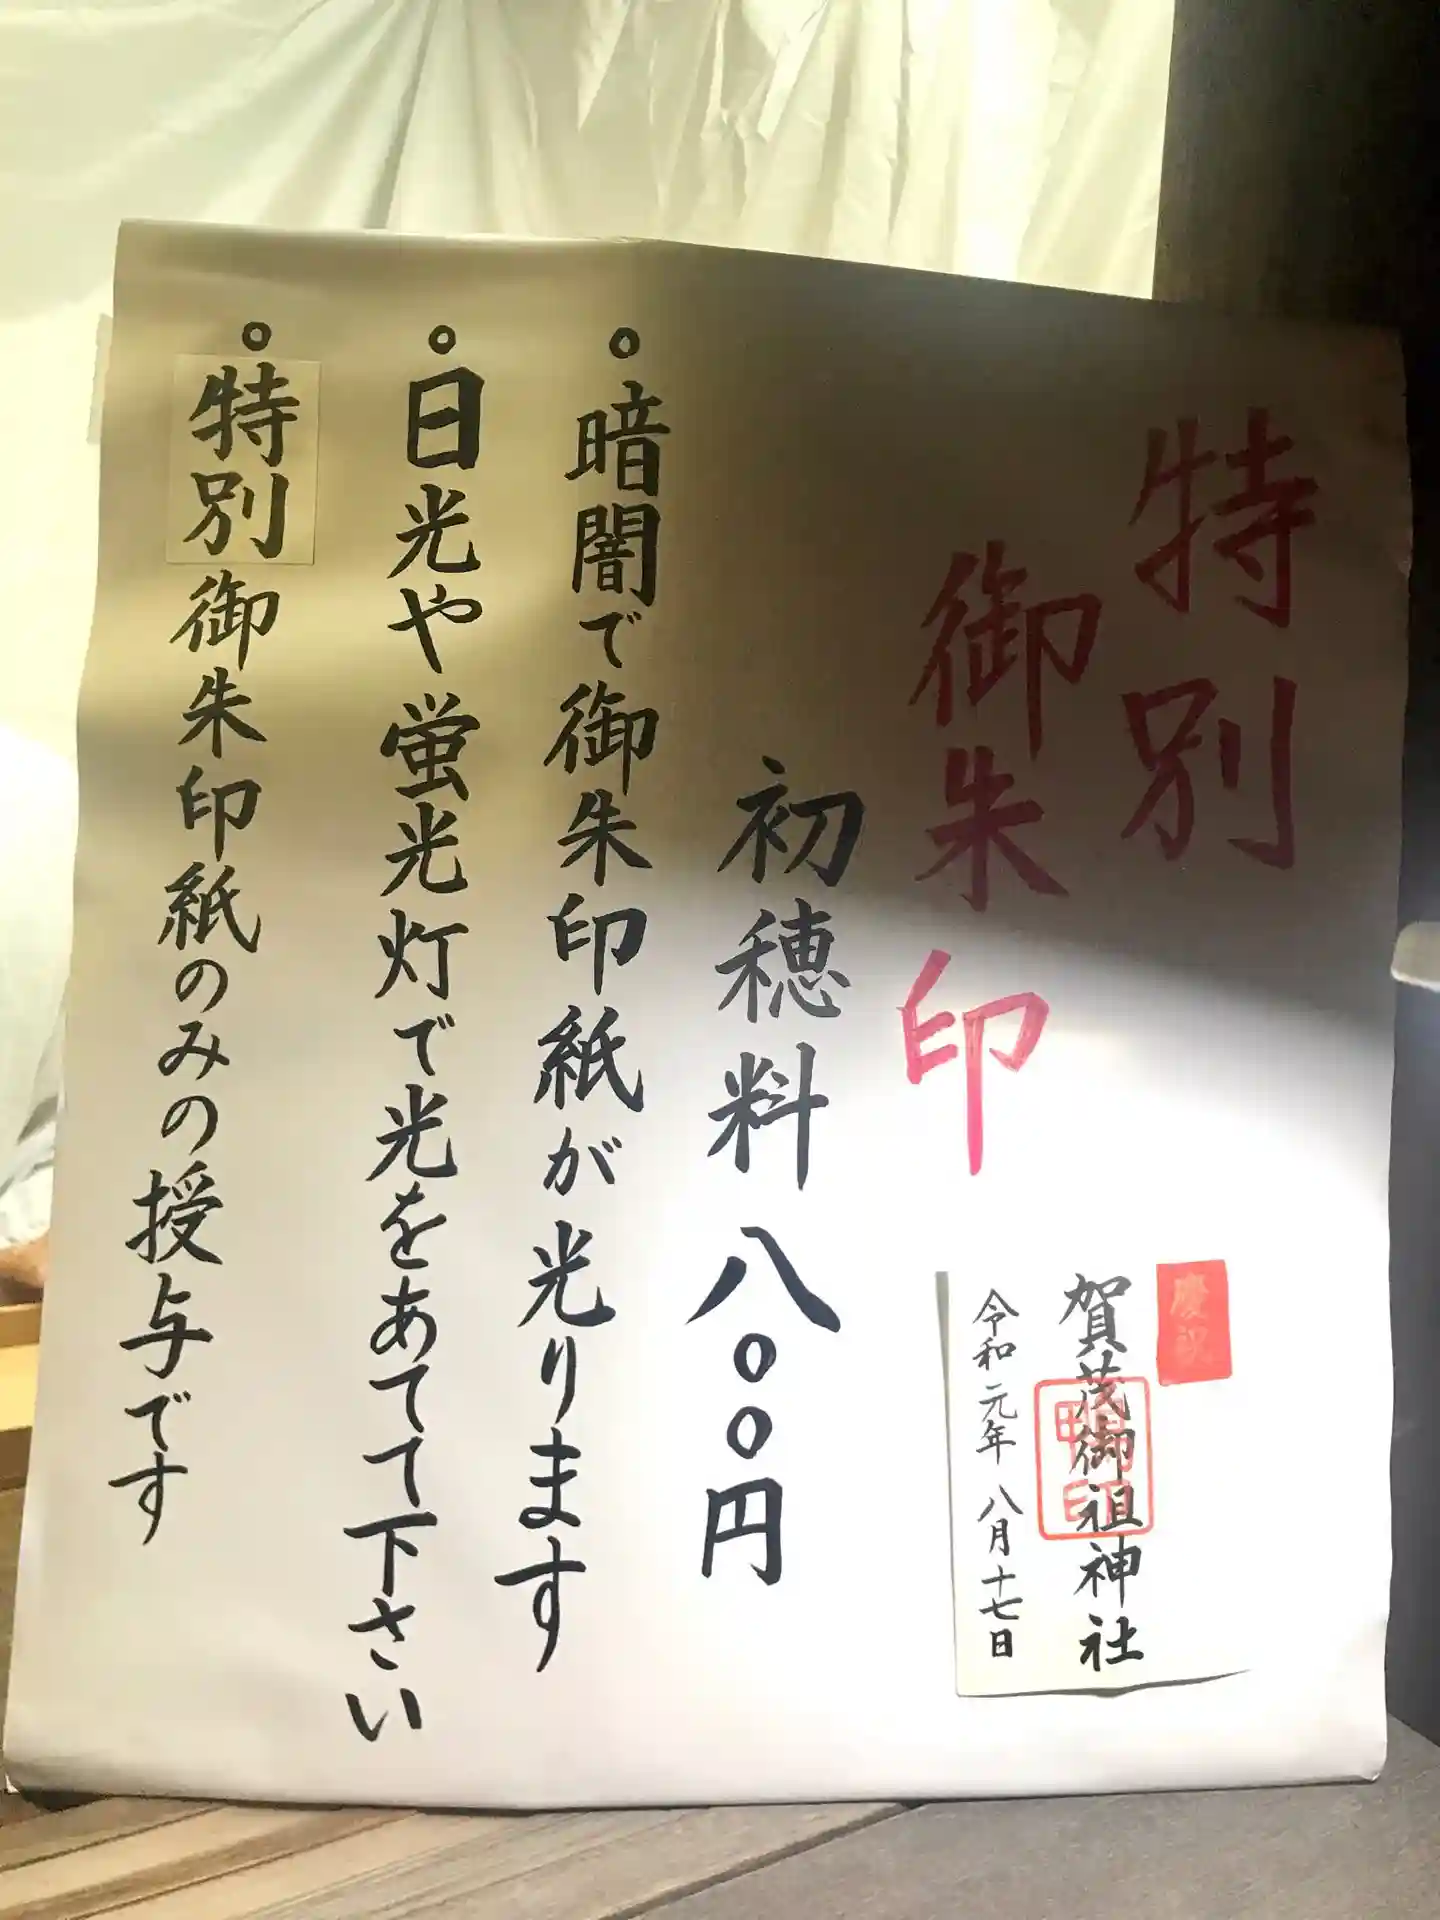 特別
御朱印
慶祝
賀茂御祖神社
鴨印
令和元年 八月十七日
初穂料 八〇〇円
。暗闇で御朱印紙が光ります
。日光や蛍光灯で光をあてて下さい
。特別御朱印紙のみの授与です